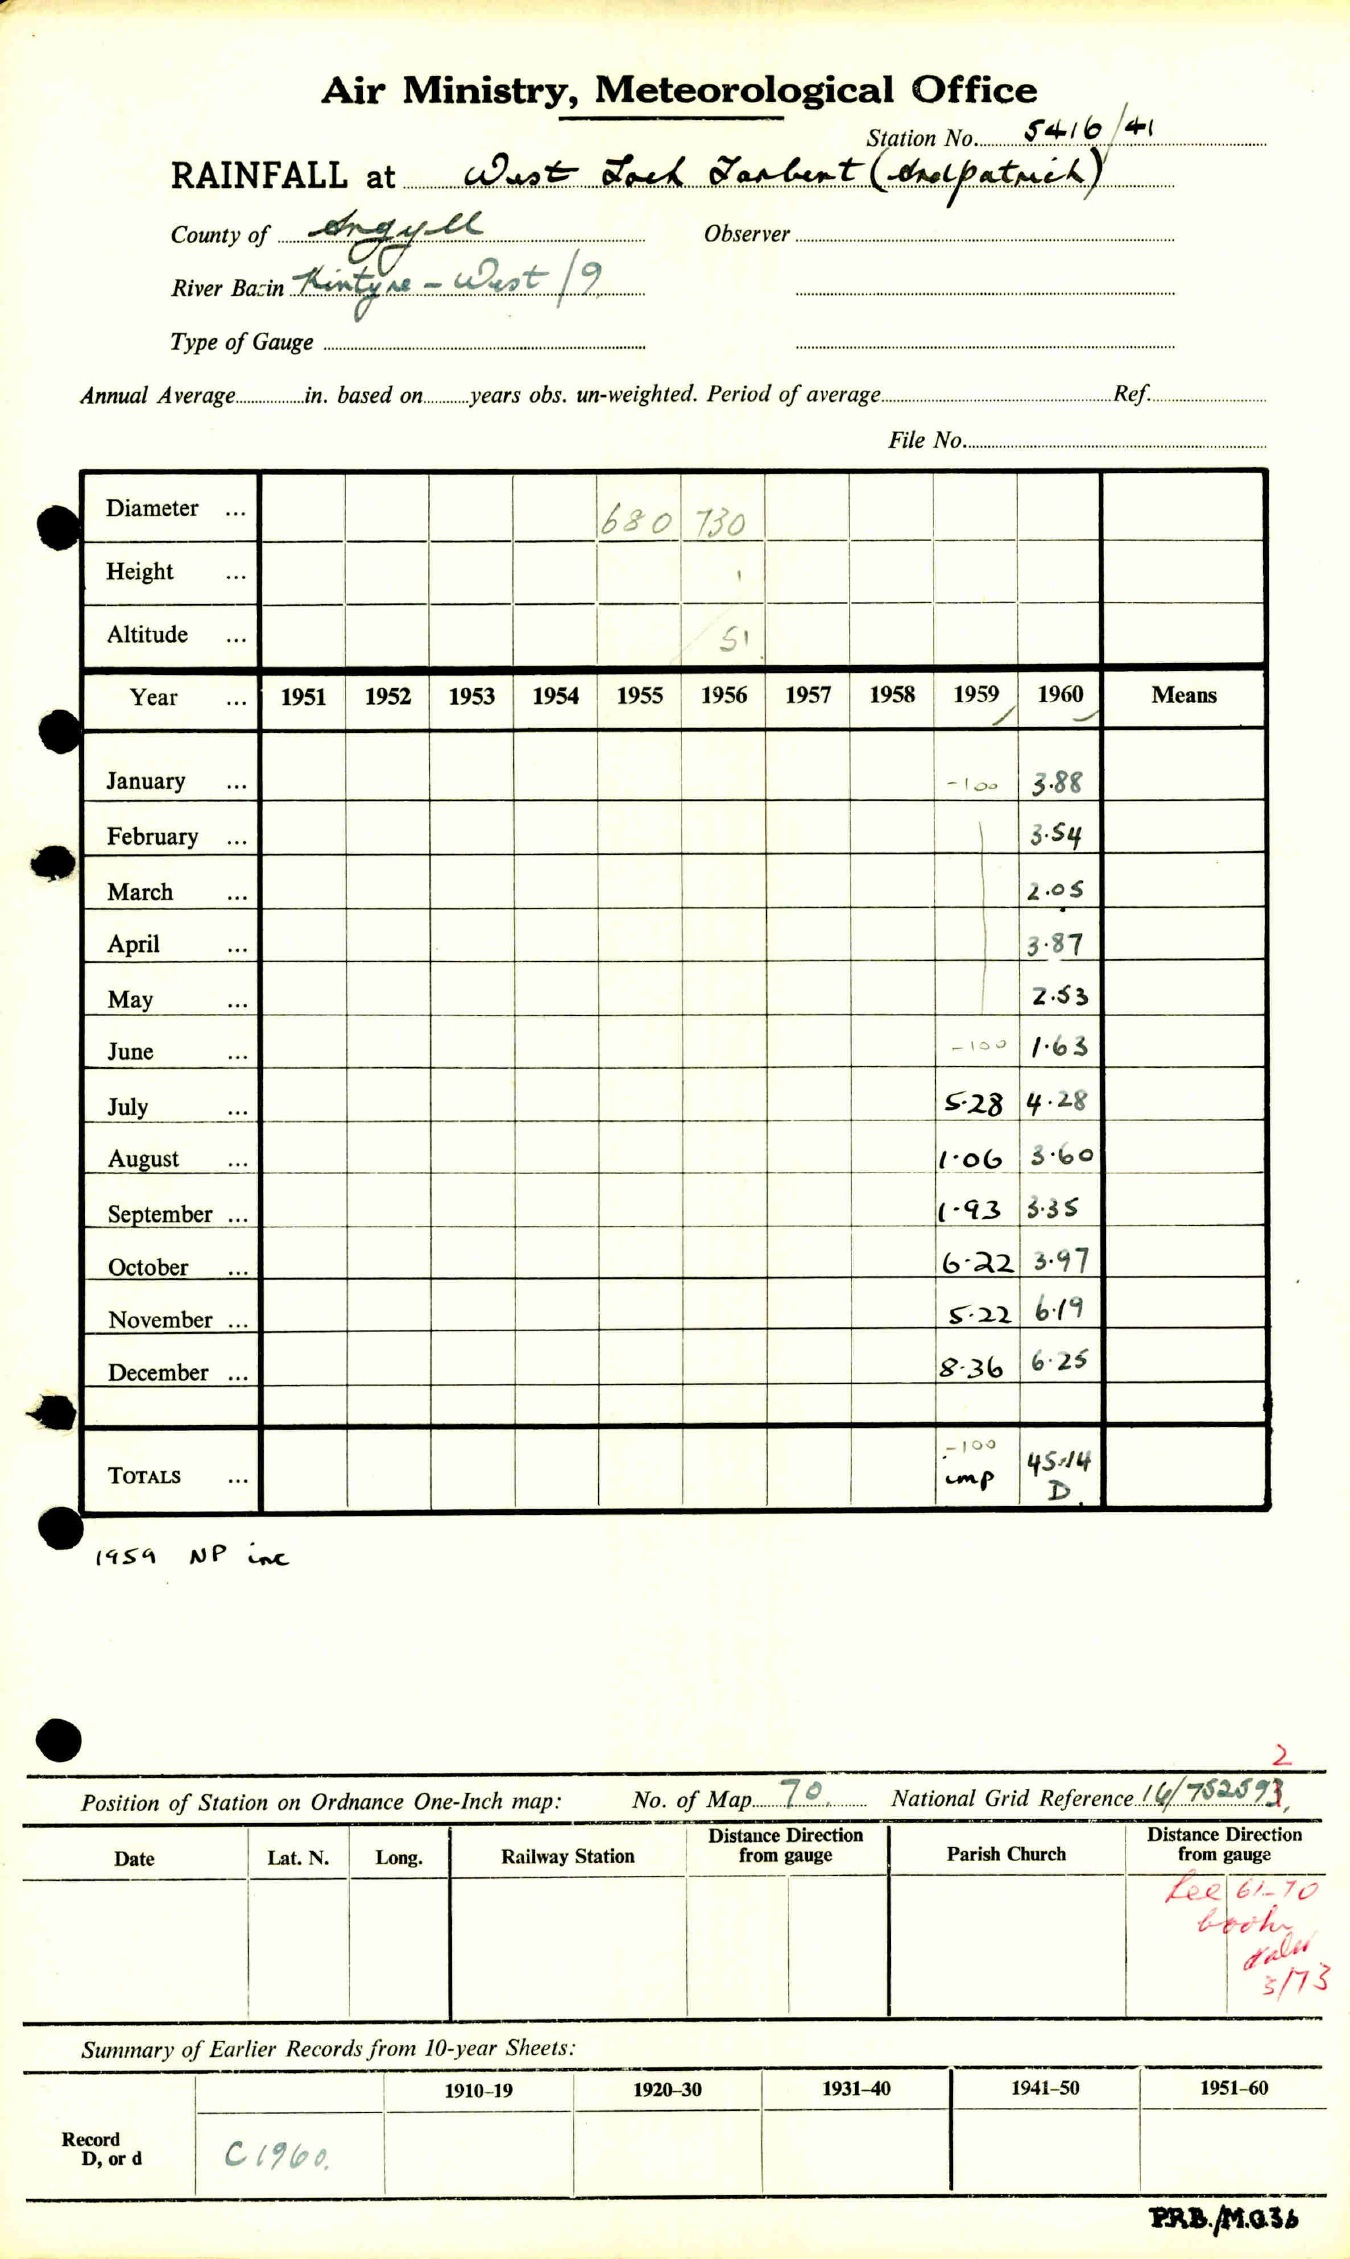 Air Ministry, Meteorological Office
Station No. 5416/41
RAINFALL at West Loch Tarbert (Ardpatrick)
County of Argyll Observer
River Basin Kintyre - West /9
Type of Gauge
Annual Average in. based on years obs. un-weighted. Period of average Ref.
File No.
Diameter ... 680 730
Height ... 1
Altitude ... 51
Year ... 1951 1952 1953 1954 1955 1956 1957 1958 1959 1960 Means
January ... -100 3.88
February ... 3.54
March ... 2.05
April ... 3.87
May ... 2.53
June ... -100 1.63
July ... 5.28 4.28
August ... 1.06 3.60
September ... 1.93 3.35
October ... 6.22 3.97
November ... 5.22 6.19
December ... 8.36 6.25
-100
TOTALS ... imp 45.14
D
1959 NP inc
2
Position of Station on Ordnance One-Inch map: No. of Map 70. National Grid Reference 16/752593
Date Lat. N. Long. Railway Station Distance Direction from gauge Parish Church Distance Direction from gauge
See 61-70
book
3/73
Summary of Earlier Records from 10-year Sheets:
1910-19 1920-30 1931-40 1941-50 1951-60
Record
D, or d C1960.
P.R.B./M.O.36